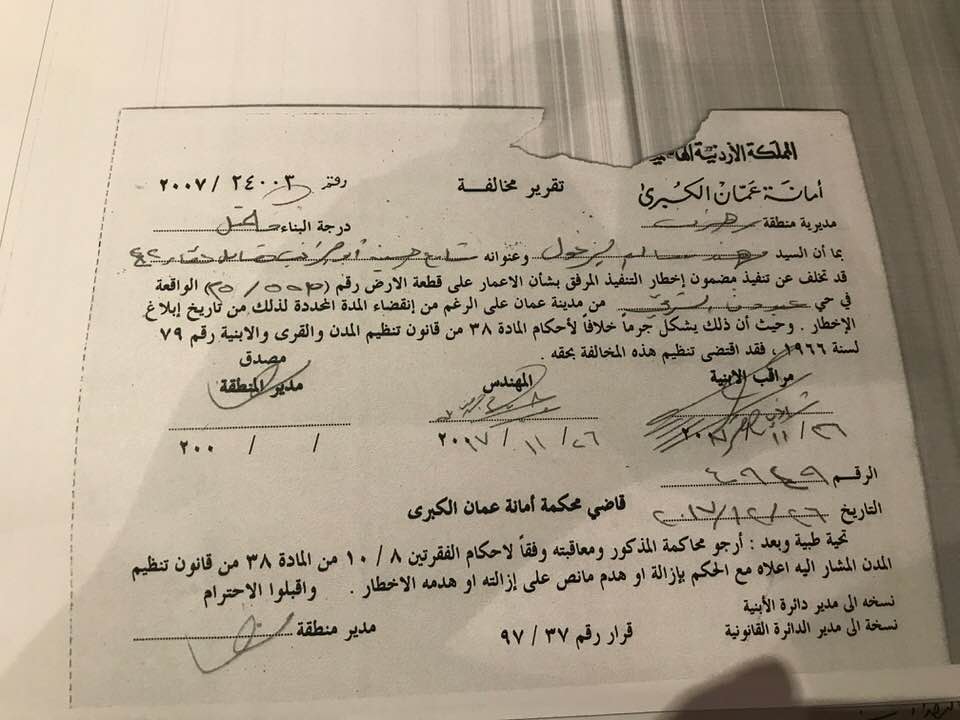 المملكة الأردنية الهاشمية
أمانة عمّان الكبرى
تقرير مخالفة
رقم ٢٤٠٠٣ / ٢٠٠٧
مديرية منطقة زهران
درجة البناء
بما أن السيد هند سالم وعنوانه شارع
قد تخلف عن تنفيذ مضمون إخطار التنفيذ المرفق بشأن الاعمار على قطعة الارض رقم الواقعة
في حي عبدون من مدينة عمان على الرغم من إنقضاء المدة المحددة لذلك من تاريخ إبلاغ
الإخطار . وحيث أن ذلك يشكل جرماً خلافاً لأحكام المادة ٣٨ من قانون تنظيم المدن والقرى والابنية رقم ٧٩
لسنة ١٩٦٦ ، فقد اقتضى تنظيم هذه المخالفة بحقه .
مصدق
مراقب الابنية المهندس مدير المنطقة
٢٦ / ١١ / ٢٠١٧ ٢٦ / ١١ / ٢٠١٧ / / ٢٠٠
الرقم ٤٩٤٩
التاريخ ٢٦/١٢/٢٠١٧
قاضي محكمة أمانة عمان الكبرى
تحية طيبة وبعد : أرجو محاكمة المذكور ومعاقبته وفقاً لاحكام الفقرتين ٨ / ١٠ من المادة ٣٨ من قانون تنظيم
المدن المشار اليه اعلاه مع الحكم بإزالة او هدم مانص على إزالته او هدمه الاخطار . واقبلوا الاحترام
نسخه الى مدير دائرة الأبنية
نسخة الى مدير الدائرة القانونية
قرار رقم ٣٧ / ٩٧
مدير منطقة